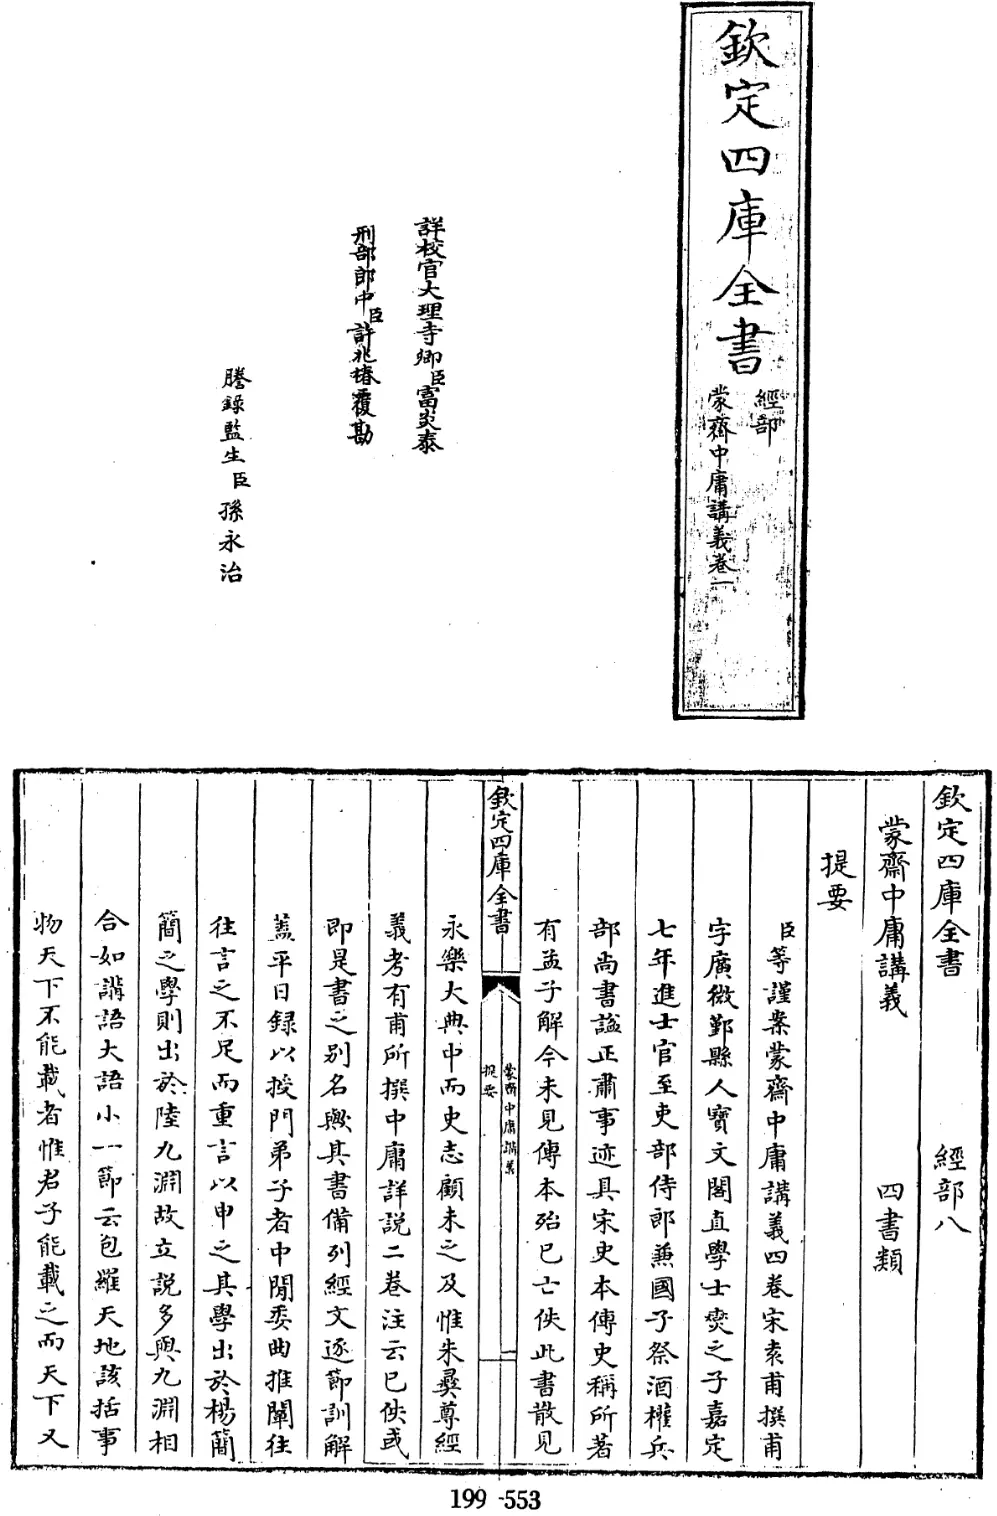 欽定四庫全書
經部
蒙齋中庸講義卷一
詳校官大理寺卿臣富炎泰
刑部郎中臣許兆椿覆勘
謄錄監生臣孫永治
欽定四庫全書 經部八
蒙齋中庸講義 四書類
提要
臣等謹案蒙齋中庸講義四卷宋袁甫撰甫
字廣微鄞縣人寶文閣直學士燮之子嘉定
七年進士官至吏部侍郎兼國子祭酒權兵
部尚書諡正肅事迹具宋史本傳史稱所著
有孟子解今未見傳本殆已亡佚此書散見
欽定四庫全書
蒙齋中庸講義
提要
一
永樂大典中而史志顧未之及惟朱彝尊經
義考有甫所撰中庸詳説二卷注云已佚或
即是書之别名歟其書備列經文逐節訓解
蓋平日録以授門弟子者中閒委曲推闡往
往言之不足而重言以申之其學出於楊簡
簡之學則出於陸九淵故立説多與九淵相
合如講語大語小一節云包羅天地該括事
物天下不能載者惟君子能載之而天下又
199-553